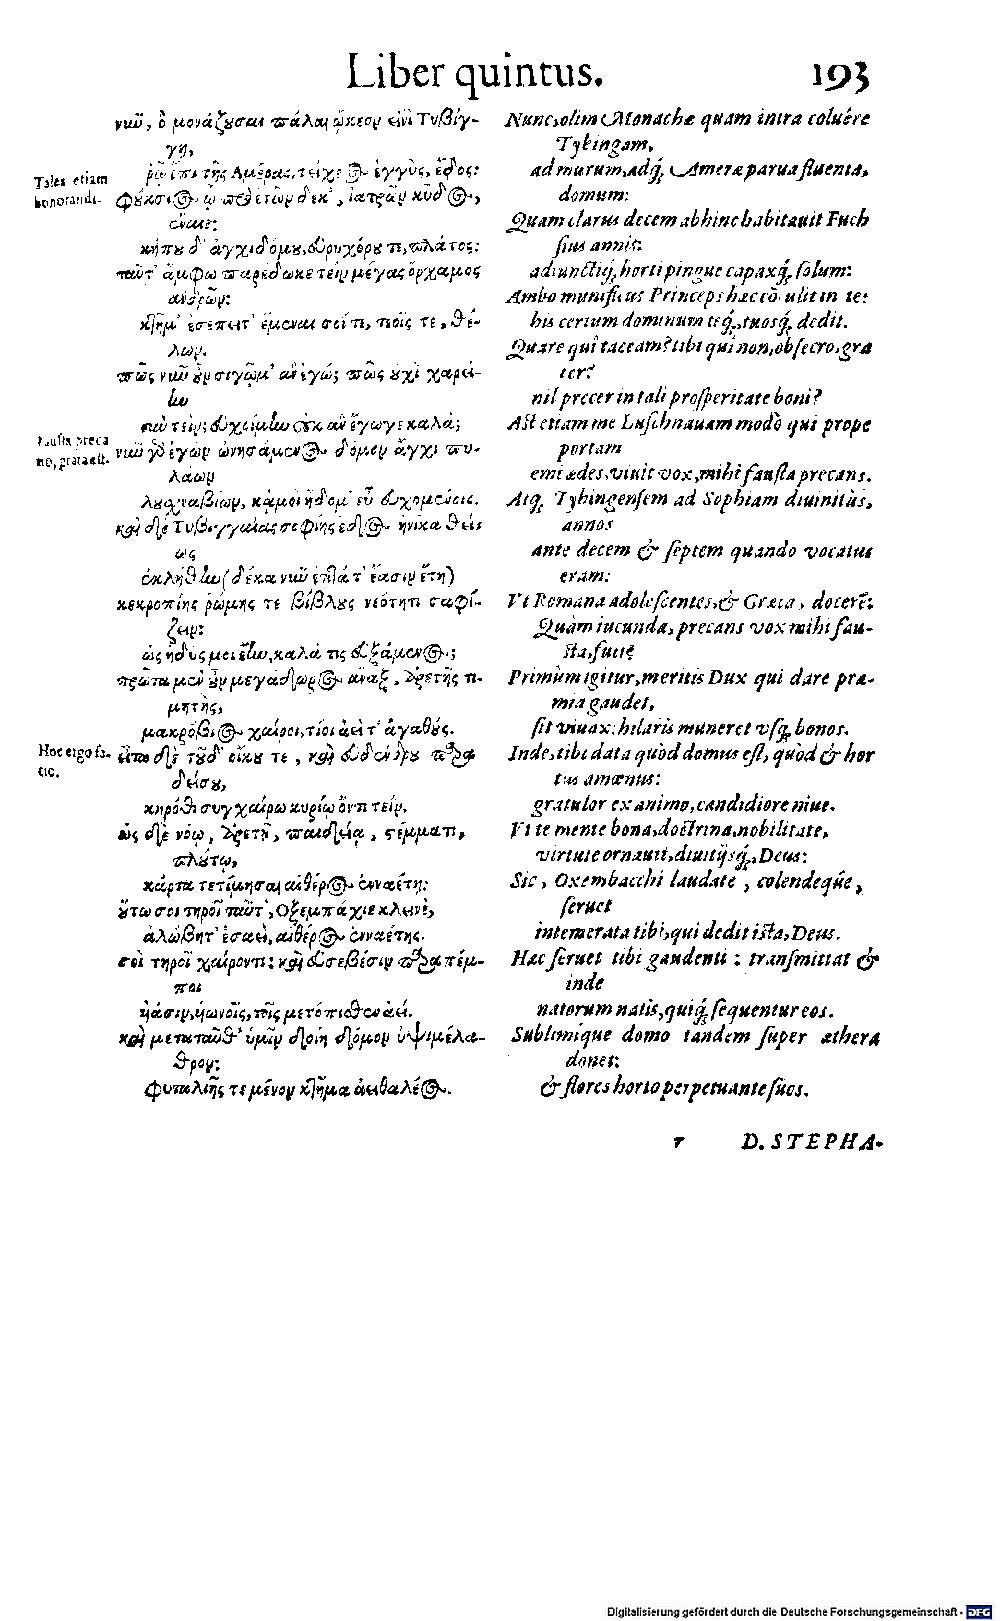 Liber quintus. 193
νιῦ, ὃ μονάζουσαι πάλαι ᾤκεον εἰνὶ Τυβίγ-
γῃ,
ἐπὶ τῆς Αμέρας, τείχεος ἐγγὺς, ἕδος:
Tales etiam
honorandi.
Φούκσιος ᾧ πρὸ ἐτῶν δεκ', ἰατρῶν κῦδος,
κήπου δ' ἀγχιδόμου, εὐρυχόρου τι, πλάτος:
ταῦτ' ἄμφω παρέδωκε τεῒν μέγας ὄρχαμος
ἀνδρῶν:
κτῆμ' ἐσέπειτ' ἔμεναι σοί τι, τοῖς τε, θέ-
λων.
πῶς νιῦ οὖν σιγῷμ' ἂν ἐγώ; πῶς οὐχὶ χαρεί-
ην
σιὼ τεῒν; εὐχοίμην οὐκ ἂν ἔγωγε καλά;
Fausta preca
no, grata est.
νιῦ γὸ ἐγὼν ὠνησάμενος δόμον ἄγχι πυ-
λάων
λουχναβίων, κᾀμοὶ ἥδομ' εὖ εὐχομένοις.
καὶ δὲ Τυβιγγαίας σοφίης ἕδος ἡνίκα θείως
ἐκλήθην (δέκα νιῦ ἑπτά τ' ἔασιν ἔτη)
κεκροπίης ῥώμης τε βίβλους νεότητι σαφί-
ζειν:
ὡς ἡδύς μοι ἔην, καλά τις εὐξάμενος;
πρῶτα μὲν οὖν μεγάδωρος ἄναξ, ἀρετῆς τι-
μητὴς,
μακρόβιος χαίροι, τίοι ἀεὶ τ' ἀγαθούς.
Hoc ergo fa-
cio.
εἶτα δὲ τοῦδ' οἴκου τε, καὶ εὐδένδρου παρα
δείσου,
κηρόθι συγχαίρω κυρίῳ ὄντι τεῒν,
ὡς δὲ νόῳ, ἀρετῇ, παιδείᾳ, στέμματι,
πλούτῳ,
κάρτα τετίμησαι αἰθέρος ἐνναέτῃ:
οὕτω σοι τηροῖ ταῦτ', Οξεμπάχιε κλεινὲ,
ἀλώβητ' ἐσαεὶ, αἰθέρος ἐνναέτης.
σοὶ τηροῖ χαίροντι: καὶ εὐσεβέσιν παραπέμ-
ποι
ἠάσιν, ἠωνοῖς, τοῖς μετόπισθεν ἀεί.
καὶ μετὰ ταῦθ' ὑμῖν δοίη δόμον ὑψιμέλα-
θρον:
φυταλιῆς τε μένον κτῆμα ἀειθαλέος.
Nunc, olim Monachæ quam intra coluêre
Tybingam,
ad murum, adq́; Ameræ parua fluenta,
domum:
Quam clarus decem abhinc habitauit Fuch
sius annis:
adiunctiq́; horti pingue capaxq́; solum:
Ambo munificus Princeps hæc cōtulit in te:
his certum dominum teq́;, tuosq́; dedit.
Quare quî taceam? tibi quî non, obsecro, gra
ter?
nil precer in tali prosperitate boni?
Ast etiam me Luschnauam modò qui prope
portam
emi ædes, iuuit vox, mihi fausta precans.
Atq́; Tybingensem ad Sophiam diuinitùs,
annos
ante decem & septem quando vocatus
eram:
Vt Romana adolescentes, & Græca, docerē:
Quàm iucunda, precans vox mihi fau-
sta, fuit?
Primùm igitur, meritis Dux qui dare præ-
mia gaudet,
sit viuax: hilaris muneret vsq́; bonos.
Inde, tibi data quòd domus est, quòd & hor
tus amœnus:
gratulor ex animo, candidiore niue.
Vt te mente bona, doctrina, nobilitate,
virtute ornauit, diuitijsq́;, Deus:
Sic, Oxembacchi laudate, colendeq́ue,
seruet
intemerata tibi, qui dedit ista, Deus.
Hæc seruet tibi gaudenti: transmittat &
inde
natorum natis, quiq́; sequentur eos.
Sublimiq́ue domo tandem super æthera
donet:
& flores horto perpetuante suos.
r D. STEPHA-
Digitalisierung gefördert durch die Deutsche Forschungsgemeinschaft - DFG